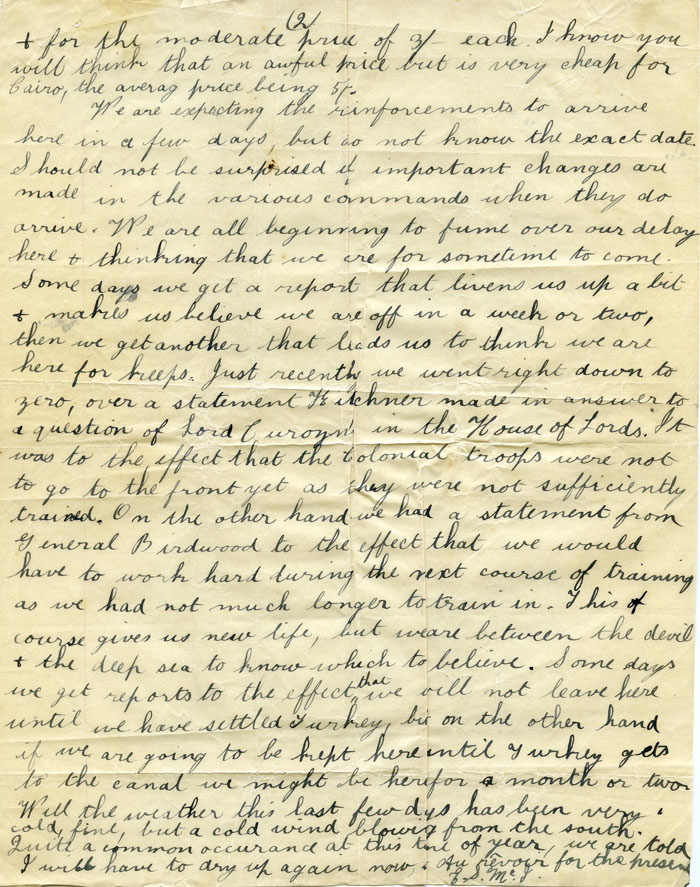 (2)
+ for the moderate price of 3/- each. I know you
will think that an awful price but is very cheap for
Cairo, the averag price being 5/-.
We are expecting the reinforcements to arrive
here in a few days, but do not know the exact date.
I should not be surprised if important changes are
made in the various commands when they do
arrive. We are all beginning to fume over our delay
here + thinking that we are for sometime to come.
Some days we get a report that livens us up a bit
+ makes us believe we are off in a week or two,
then we get another that leads us to think we are
here for keeps. Just recently we went right down to
zero, over a statement Kitchner made in answer to
a question of Lord in the House of Lords. It
was to the effect that the Colonial troops were not
to go to the front yet as they were not sufficiently
trained. On the other hand we had a statement from
General Birdwood to the effect that we would
have to work hard during the next course of training
as we had not much longer to train in. This of
course gives us new life, but we are between the devil
+ the deep sea to know which to believe. Some days
we get reports to the effect that we will not leave here
until we have settled Turkey, but on the other hand
if we are going to be kept here until Turkey gets
to the canal we might be here for a month or two
Well the weather this last few dys has been very
cold, fine, but a cold wind blowing from the south.
Quite a common occurance at this time of year, we are told
I will have to dry up again now. Au revoir for the present
E. S. McI.